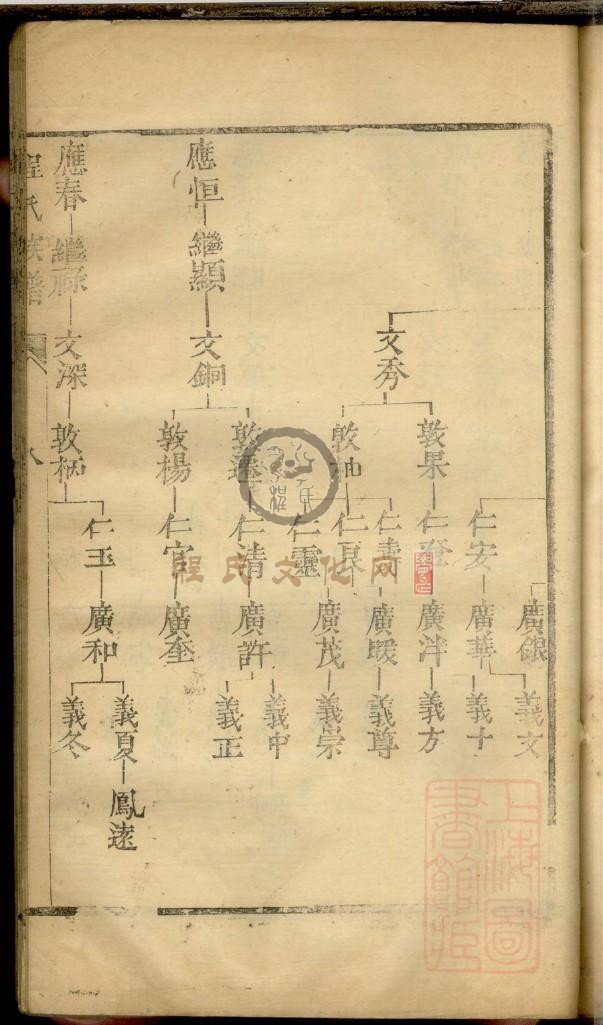 廣銀
義文
仁安
廣華
義十
文秀
敦果
廣泮
義方
仁壽
廣暖
義尊
仁良
廣茂
義崇
仁靈
應恒
繼顯
文銅
仁清
廣許
義中
義正
敦楊
仁官
廣奎
應春
繼祿
文深
敦柄
仁玉
廣和
義夏
鳳遠
義冬
程氏族譜
八
程氏文化网
上海圖書館藏